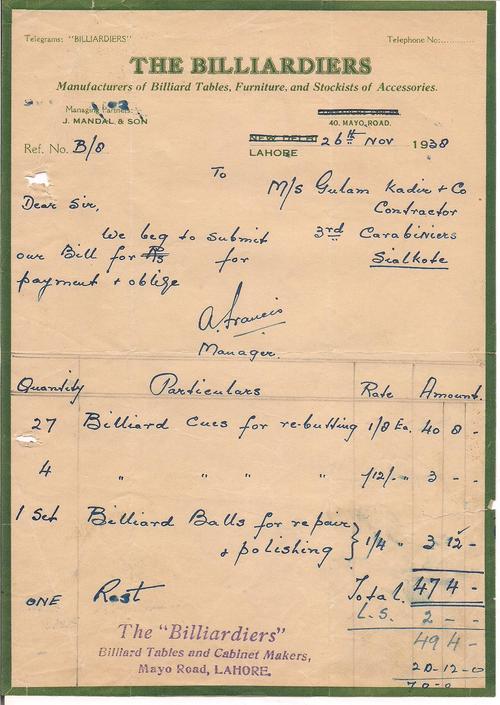 Telegrams: "BILLIARDIERS"
Telephone No:............
THE BILLIARDIERS
Manufacturers of Billiard Tables, Furniture, and Stockists of Accessories.
Managing Partners:
J. MANDAL & SON
40, MAYO ROAD.
Ref. No. B/8
NEW DELHI
LAHORE
26th Nov 1938
To
M/s Gulam Kadir & Co
Contractor
3rd Carabiniers
Sialkote
Dear Sir,
We beg to submit
our Bill for Rs for
payment & oblige
A. Francis
Manager.
Quantity Particulars Rate Amount.
27 Billiard Cues for re-butting 1/8 Ea. 40 8 -
4 " " " " /12/- " 3 - -
1 Set Billiard Balls for repair
& polishing } 1/4 " 3 12 -
Total. 47 4 -
ONE Rest L.S. 2 - -
49 4 -
20-12-0
70-0
The "Billiardiers"
Billiard Tables and Cabinet Makers,
Mayo Road, LAHORE.